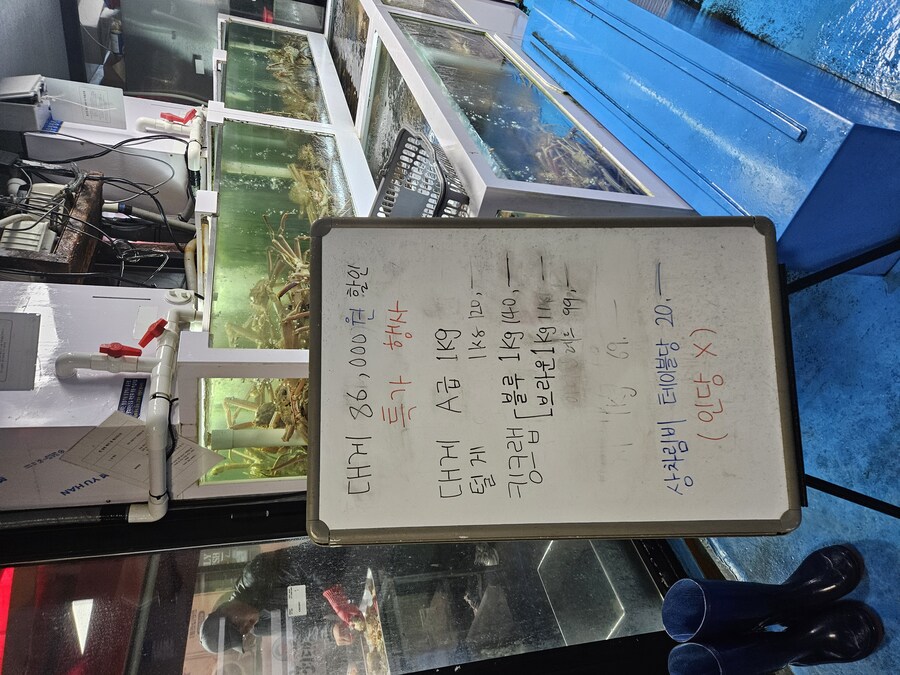 대게 86,000원 할인
특가 행사
대게 A급 1Kg
털게 1Kg 120,—
킹크랩 [블루 1Kg 140,—
[브라운 1Kg
99,—
1Kg 69.
상차림비 테이블당 20.—
(인당 X)
YUHAN